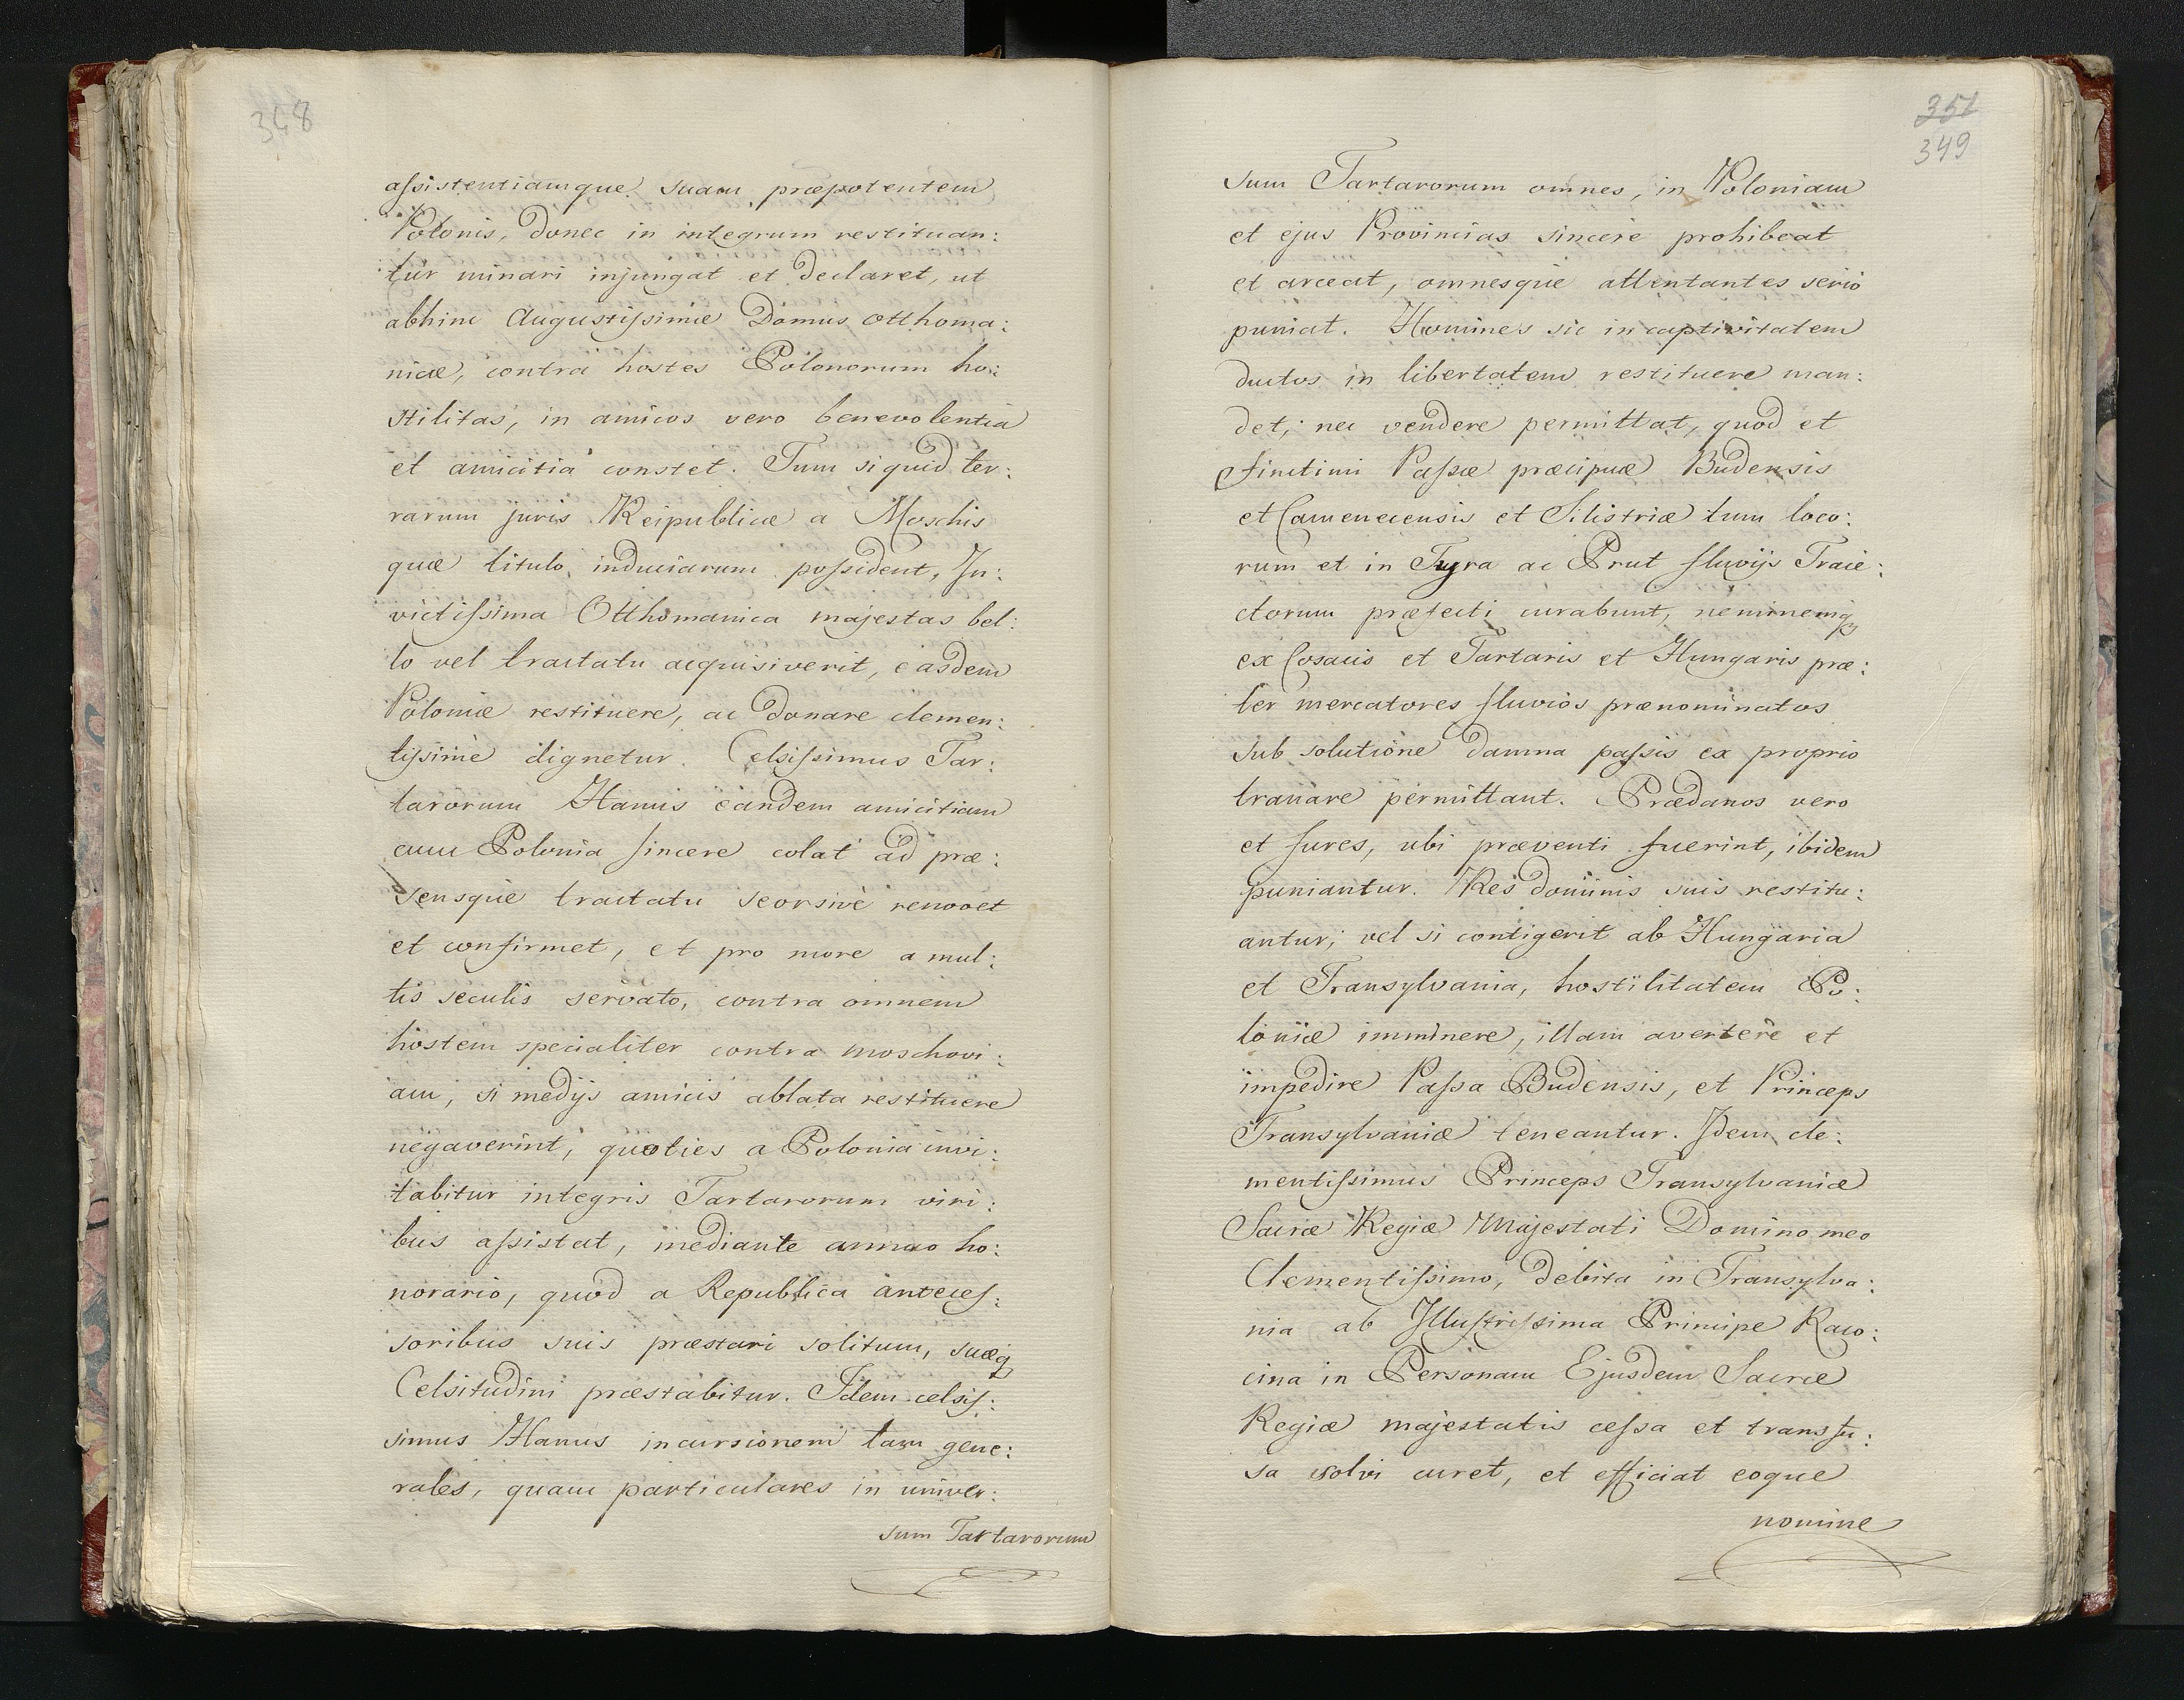 348
assistentiamque suam præpotentem
Polonis, donec in integrum restituan:
tur minari injungat et declaret, ut
abhinc Augustissimæ Domus Otthoma:
nicæ, contra hostes Polonorum ho:
stilitas, in amicos vero benevolentia
et amicitia constet. Tum si quid ter:
rarum juris Reipublicæ a Moschis
quæ titulo induciarum possident, In:
victissima Otthomanica majestas bel:
lo vel tractatu acquisiverit, easdem
Poloniæ restituere, ac donare clemen:
tissime dignetur. Celsissimus Tar:
tarorum Hamis eandem amicitiam
cum Polonia sincere colat ad præ:
sensque tractatu seorsive renovet
et confirmet, et pro more a mul:
tis seculis servato, contra omnem
hostem specialiter contra moschovi:
am, si medijs amicis ablata restituere
negaverint, quoties a Polonia invi:
tabitur integris Tartarorum viri:
bus assistat, mediante annuo ho:
norario, quod a Republica anteces:
soribus suis præstari solitum, suæq
Celsitudini præstabitur. Idem celsis:
simus Hamus incursionem tam gene:
rales, quam particulares in univer:
sum Tartarorum
351
349
sum Tartarorum omnes, in Poloniam
et ejus Provincias sincere prohibeat
et arceat, omnesque attentantes serio
puniat. Homines sic in captivitatem
ductos in libertatem restituere man:
det, nec vendere permittat, quod et
finitimi Passæ præcipuæ Budensis
et Camenecensis et Silistriæ tum loco:
rum et in Tyra ac Prut fluvijs Traie:
ctorum præfecti curabunt, neminemq
ex Cosacis et Tartaris et Hungaris præ:
ter mercatores fluvios prænominatos
sub solutione damna passis ex proprio
tranare permittant. Prædanos vero
et fures, ubi præventi fuerint, ibidem
puniantur. Res dominis suis restitu:
antur, vel si contigerit ab Hungaria
et Transylvania, hostilitatem Po:
loniæ imminere, illam avertere et
impedire Passa Budensis, et Princeps
Transylvaniæ teneantur. Idem cle:
mentissimus Princeps Transylvaniæ
Sacræ Regiæ Majestati Domino meo
Clementissimo, debita in Transylva:
nia ab Illustrissima Principe Raco:
cina in Personam Ejusdem Sacræ
Regiæ majestatis cessa et transfu:
sa solvi curet, et efficiat eoque
nomine